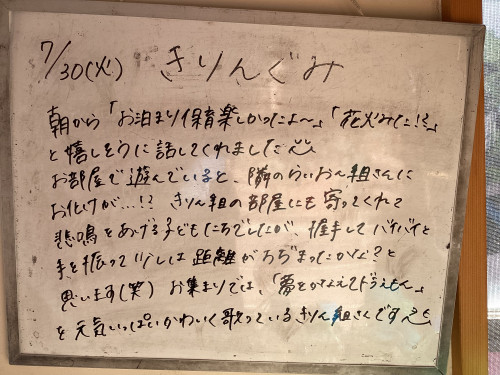 7/30(火) きりんぐみ
朝から「お泊まり保育楽しかったよ〜」「花火みたよ!!」
と嬉しそうに話してくれました
お部屋で遊んでいると、隣のらいおん組さんに
お化けが…!? きりん組の部屋にも寄ってくれて
悲鳴をあげる子どもたちでしたが、握手してバイバイと
手を振って少しは距離がちぢまったかな?と
思います(笑) お集まりでは、「夢をかなえてドラえもん」
を元気いっぱいかわいく歌っているきりん組さんです